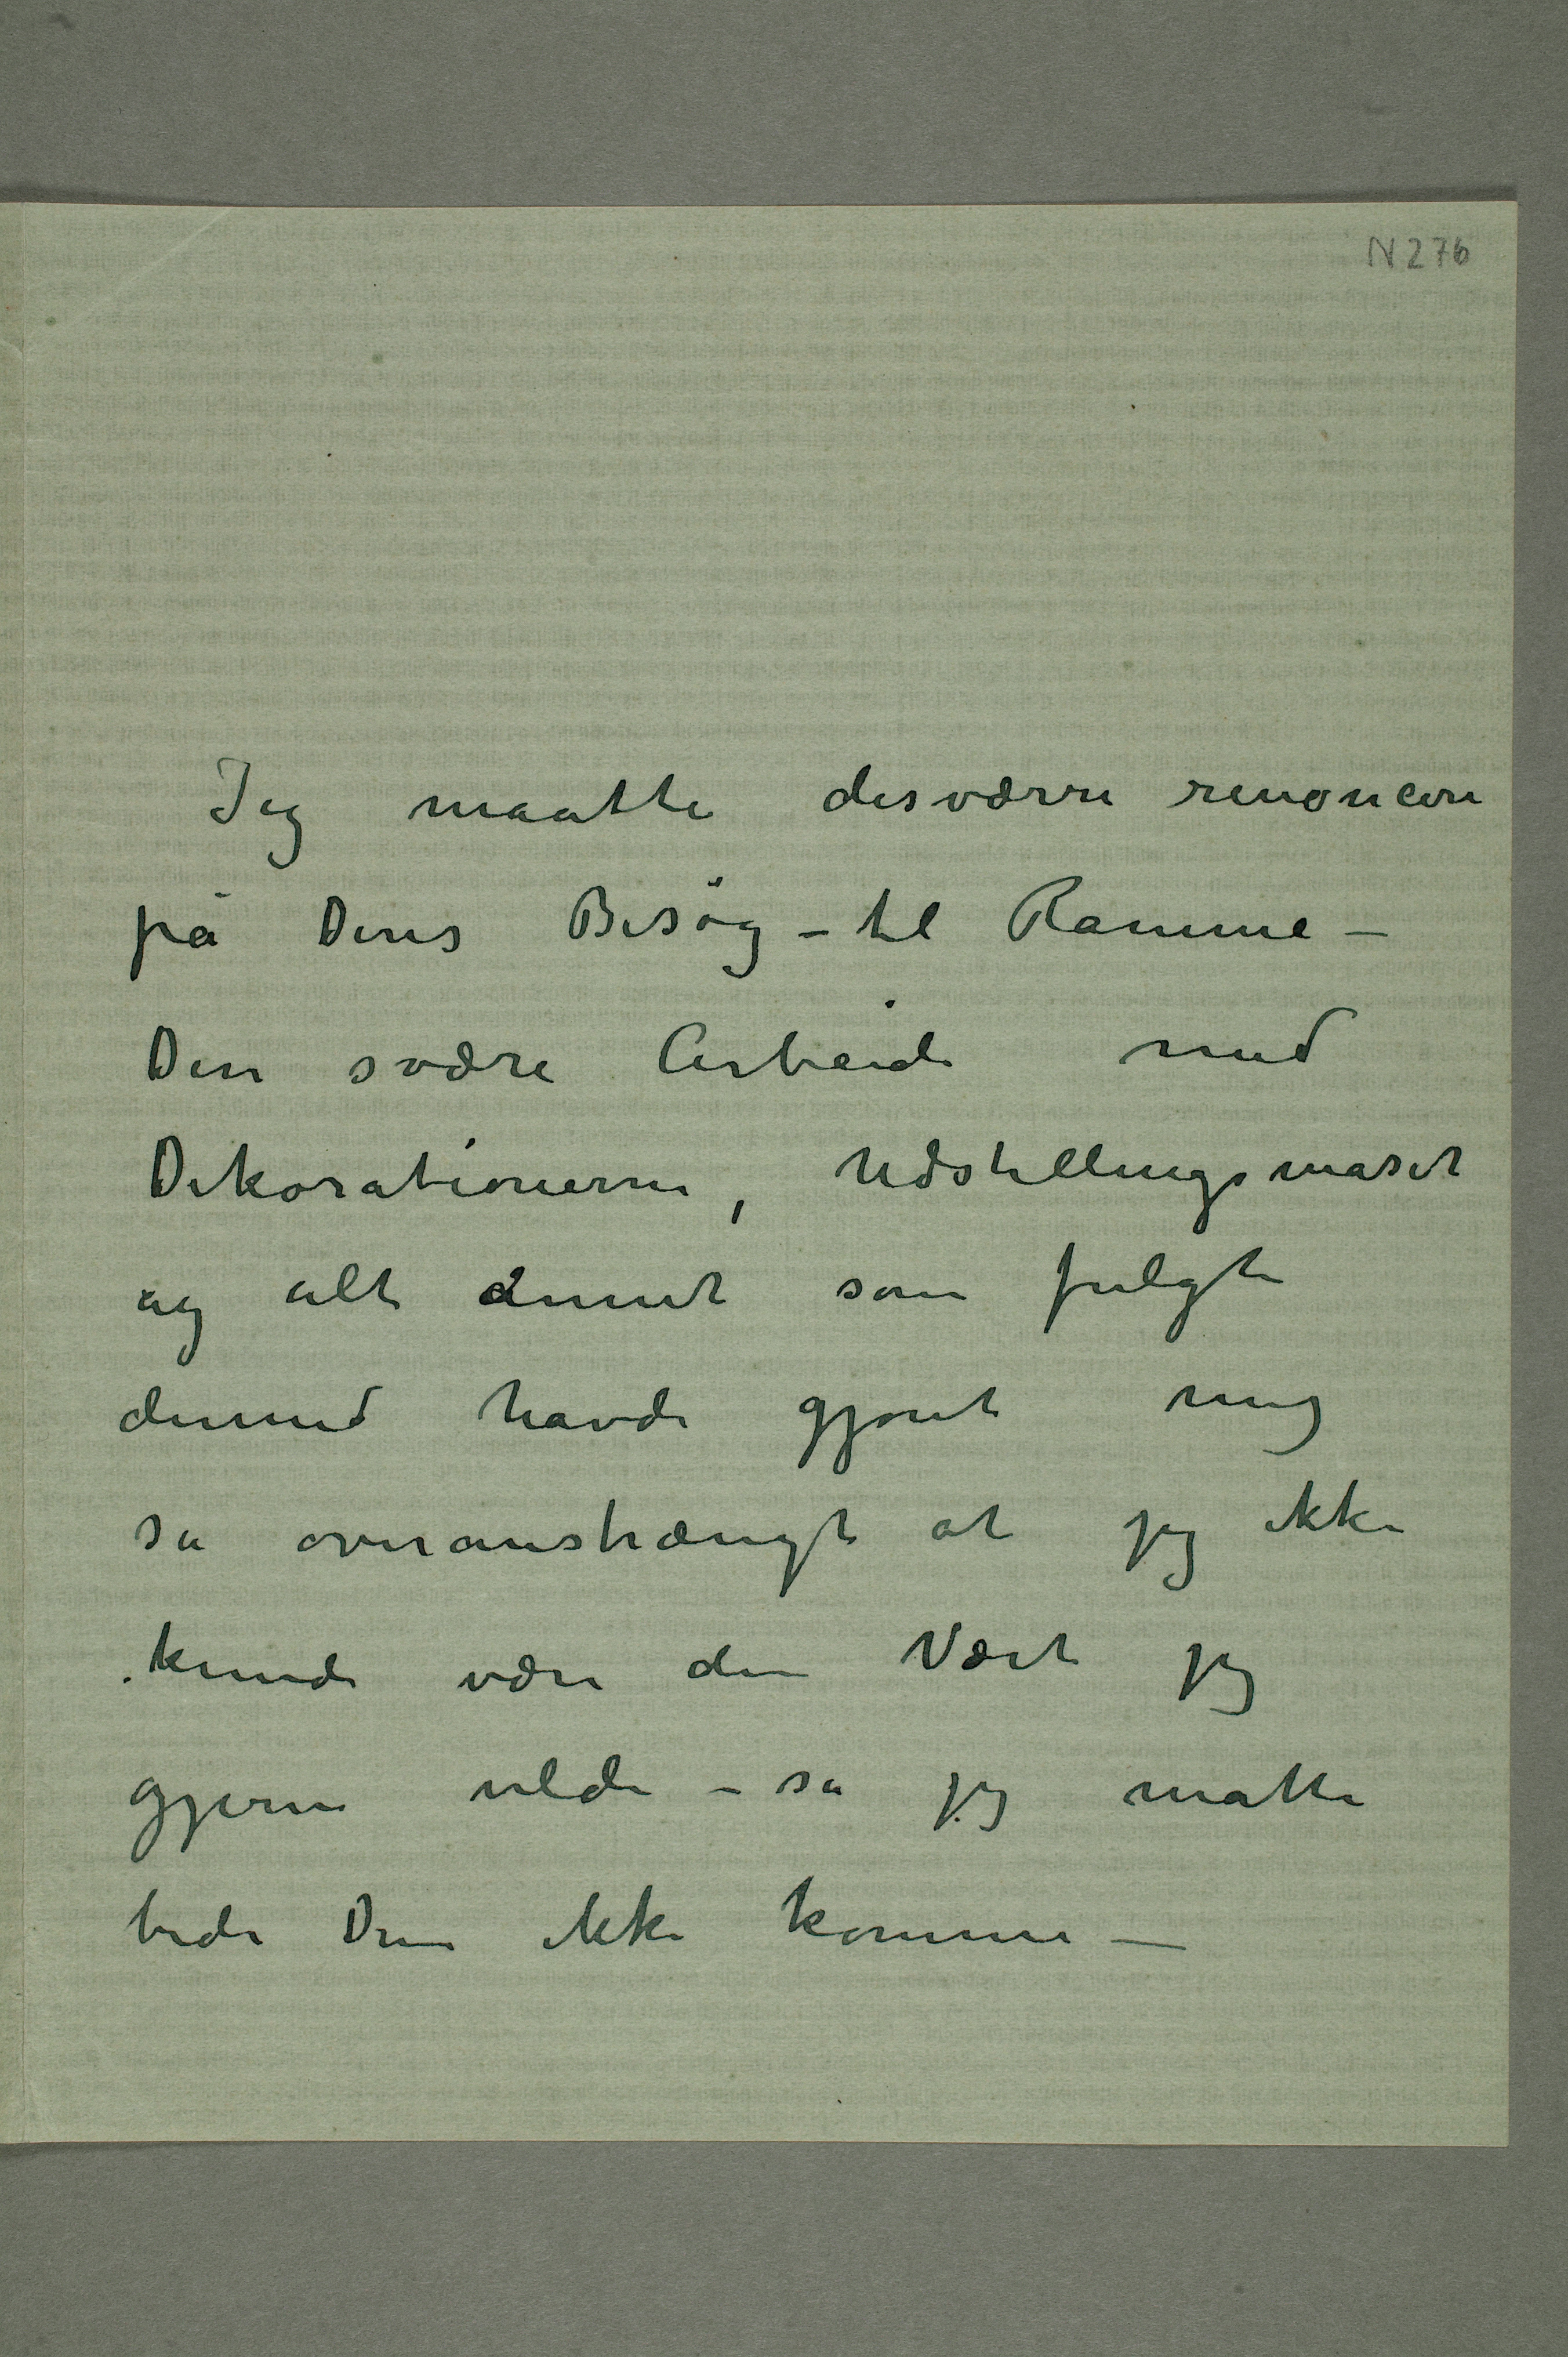 N 276
Jeg maatte desværre renoncere
på Deres Besøg – til Ramme –
Den svære Arbeide med
Dekorationerne, Udstillingsmaset
og alt annet som fulgte
dermed havde gjort mig
så overanstrængt at jeg ikke
kunde være den Vært jeg
gjerne vilde – så jeg måtte
bede Dem ikke komme —